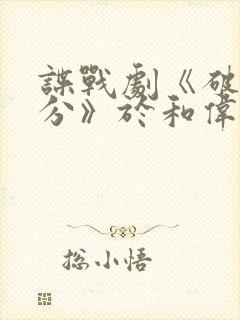 諜戰劇《破
分》於和偉
總小悟